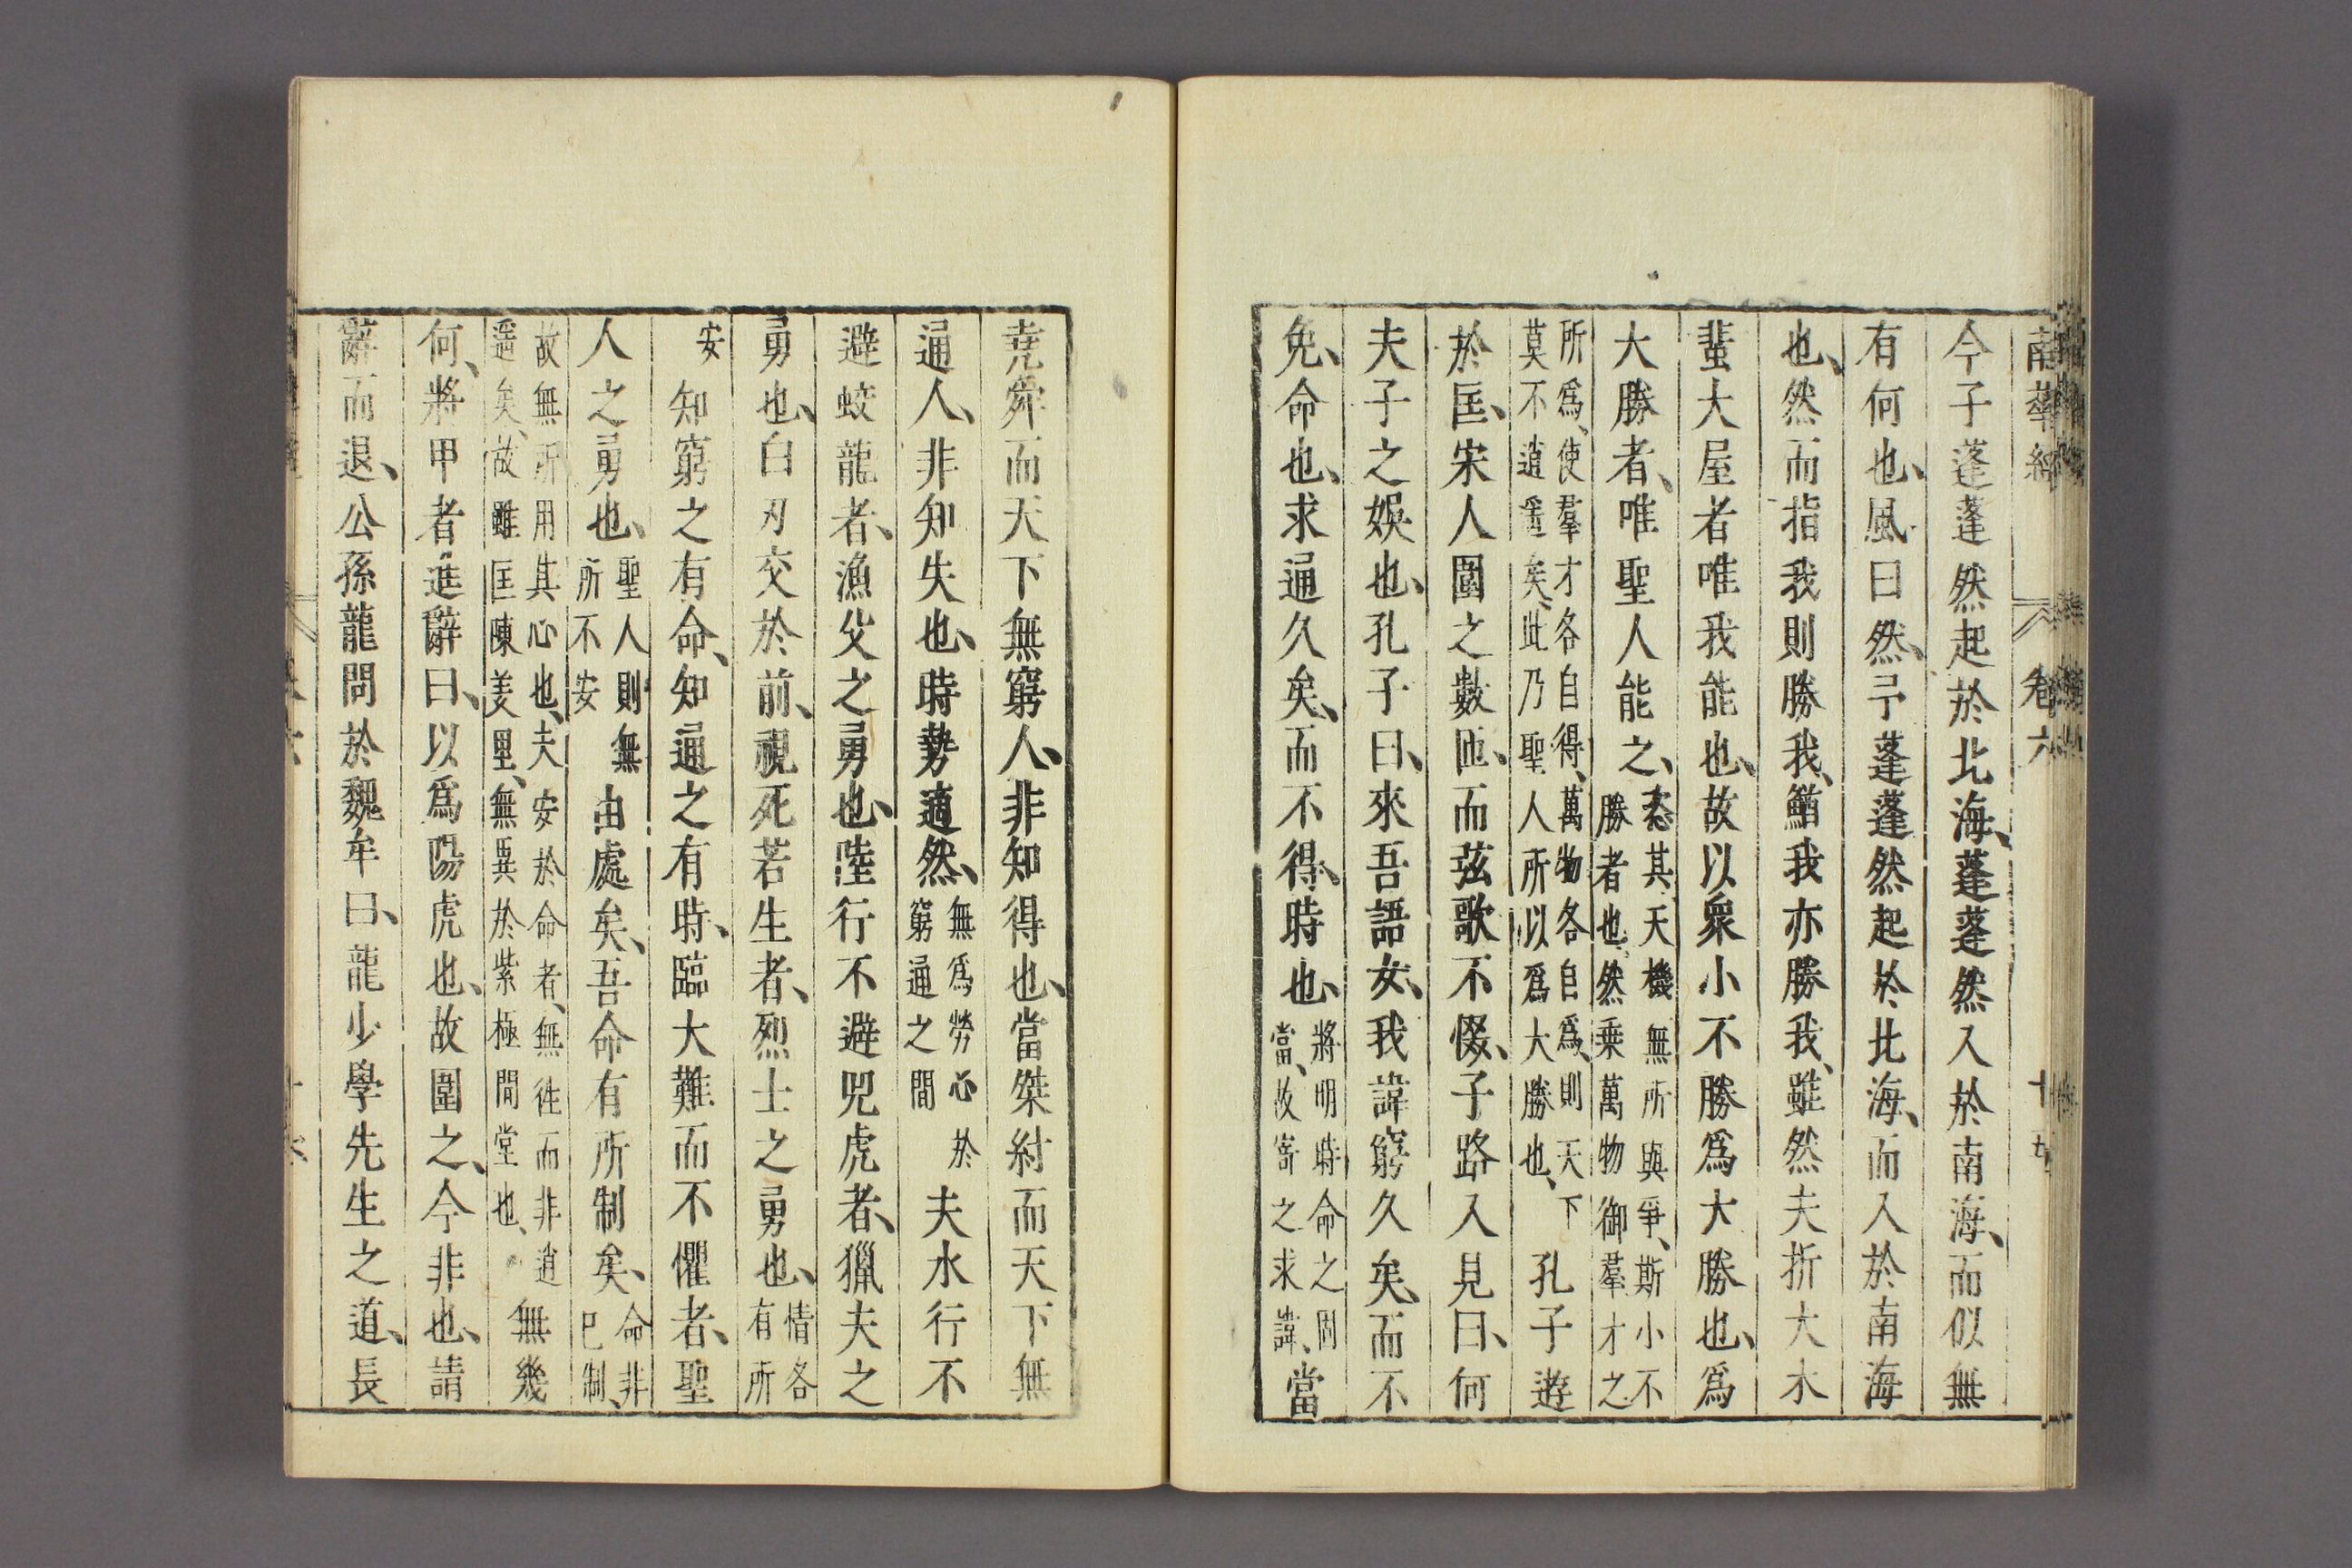 南華經 卷六 十五
今子蓬蓬然起於北海、蓬蓬然入於南海、而似無
有何也、風曰然、予蓬蓬然起於北海、而入於南海
也、然而指我則勝我、鰌我亦勝我、雖然夫折大木
蜚大屋者唯我能也、故以衆小不勝爲大勝也、爲
大勝者、唯聖人能之、恣其天機無所與爭、斯小不勝者也、然乘萬物御羣才之
所爲、使羣才各自得、萬物各自爲、則天下莫不逍遙矣、此乃聖人所以爲大勝也、孔子遊
於匡、宋人圍之數匝、而弦歌不惙、子路入見曰、何
夫子之娛也、孔子曰、來吾語女、我諱窮久矣、而不
免、命也、求通久矣、而不得、時也、將明時命之固當、故寄之求諱、當
堯舜而天下無窮人、非知得也、當桀紂而天下無
通人、非知失也、時勢適然、無爲勞心於窮通之間夫水行不
避蛟龍者、漁父之勇也、陸行不避兕虎者、獵夫之
勇也、白刃交於前、視死若生者、烈士之勇也、情各有所
安知窮之有命、知通之有時、臨大難而不懼者、聖
人之勇也、聖人則無所不安由處矣、吾命有所制矣、命非己制、
故無所用其心也、夫安於命者、無徃而非逍遙矣、故雖匡陳羑里、無異於紫極間堂也、無幾
何、將甲者進辭曰、以爲陽虎也、故圍之、今非也、請
辭而退、公孫龍問於魏牟曰、龍少學先生之道、長